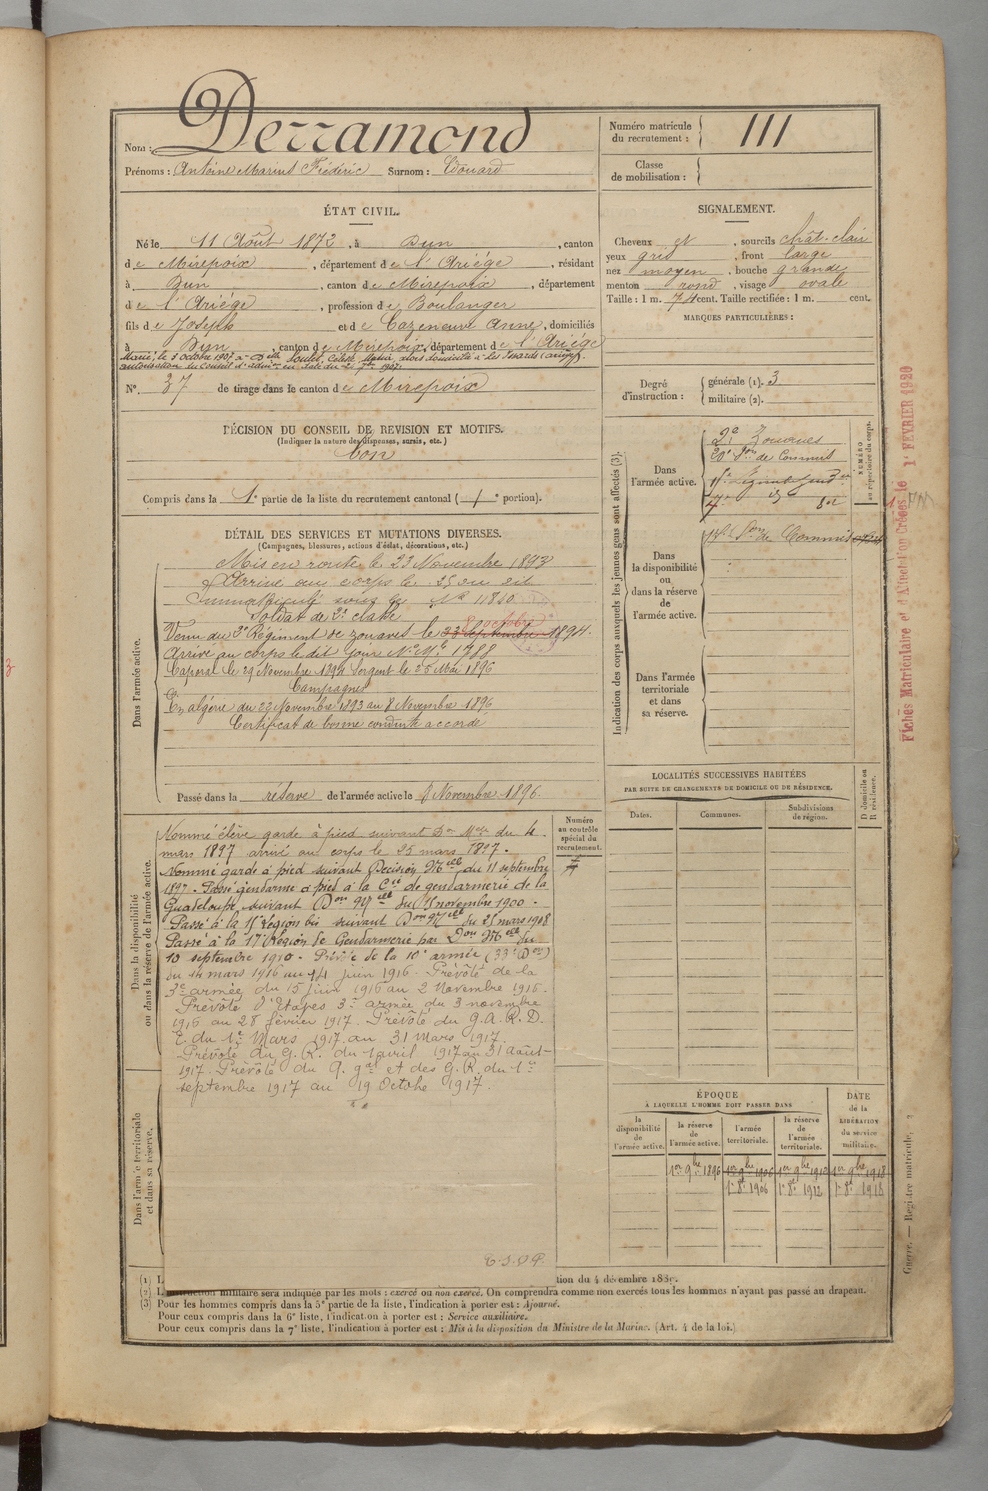 Nom : Derramond
Prénoms : Antoine Marius Frédéric Surnom : Edouard
Numéro matricule du recrutement : 111
Classe de mobilisation :
ÉTAT CIVIL.
Né le 11 Août 1872, à Dun, canton
de Mirepoix, département de l'Ariège, résidant
à Dun, canton de Mirepoix, département
de l'Ariège, profession de Boulanger
fils de Joseph et de Cazeneuve Anne, domiciliés
à Dun, canton de Mirepoix, département de l'Ariège
Marié le 3 octobre 1907 à Delle
autorisation du Conseil d'admon en date du 21 7bre 1907.
N° 37 de tirage dans le canton de Mirepoix
SIGNALEMENT.
Cheveux et, sourcils chât-clair
yeux gris, front large
nez moyen, bouche grande
menton rond, visage ovale
Taille : 1 m. 74 cent. Taille rectifiée : 1 m. cent.
MARQUES PARTICULIÈRES :
Degré d'instruction : générale (1). 3
militaire (2).
DÉCISION DU CONSEIL DE REVISION ET MOTIFS.
(Indiquer la nature des dispenses, sursis, etc.)
bon
Compris dans la 1e partie de la liste du recrutement cantonal ( / e portion).
DÉTAIL DES SERVICES ET MUTATIONS DIVERSES.
(Campagnes, blessures, actions d'éclat, décorations, etc.)
Dans l'armée active.
Mis en route le 23 Novembre 1893
Arrivé au corps le 25 au dit
Immatriculé sous le N° 11810
Soldat de 2e classe
8 octobre
Venu du 2e Régiment de zouaves le 23 septembre 1894.
Arrivé au corps le dit jour N° Mle 1388
Caporal le 29 Novembre 1894 Sergent le 25 Mai 1896
Campagnes
En algérie du 23 Novembre 1893 au 8 Novembre 1896
Certificat de bonne conduite accordé
Passé dans la réserve de l'armée active le 1 Novembre 1896.
Indication des corps auxquels les jeunes gens sont affectés (3).
NUMÉRO au répertoire du corps.
Dans l'armée active.
2e Zouaves
20e Son de Commis
15e Légion de Gendrie
17e d°
Dans la disponibilité ou dans la réserve de l'armée active.
Son de Commis
Dans l'armée territoriale et dans sa réserve.
Fiches Matriculaire et d'Affectation Créées le 1er FEVRIER 1929
LOCALITÉS SUCCESSIVES HABITÉES
PAR SUITE DE CHANGEMENTS DE DOMICILE OU DE RÉSIDENCE.
Dates. Communes. Subdivisions de région. D domicile ou R résidence.
Dans la disponibilité ou dans la réserve de l'armée active.
Numéro au contrôle spécial du recrutement.
Nommé élève garde à pied suivant Don Mlle du 4
mars 1897 arrivé au corps le 25 mars 1897.
Nommé garde à pied suivant Décision Mlle du 11 septembre
1897. Passé gendarme à pied à la Cie de gendarmerie de la
Guadeloupe suivant Don Mlle du 15 novembre 1900.
Passé à la 15e Région bis suivant Don Mlle du 25 mars 1908
Passé à la 17e Région de Gendarmerie par Don Mlle du
10 septembre 1910. Prévôté de la 10e armée (33e Don)
du 14 mars 1916 au 14 juin 1916. Prévôté de la
3e armée du 15 juin 1916 au 2 Novembre 1916.
Prévôté d'Etapes 3e armée du 3 novembre
1916 au 28 février 1917. Prévôté du G.A.R.D.
E. du 1er Mars 1917 au 31 Mars 1917.
Prévôté du G.R. du 1 avril 1917 au 31 août
1917. Prévôté du Q. gal et des G.R. du 1er
septembre 1917 au 19 Octobe 1917.
T.S.V.P.
Dans l'armée territoriale et dans sa réserve.
ÉPOQUE
À LAQUELLE L'HOMME DOIT PASSER DANS
la disponibilité de l'armée active.
la réserve de l'armée active.
l'armée territoriale.
la réserve de l'armée territoriale.
DATE de la LIBÉRATION du service militaire.
1er 9bre 1896 1er 9bre 1906 1er 9bre 1912 1er 9bre 1918
1er 8e 1906 1er 8e 1912 1er 8e 1918
Guerre. — Registre matricule, 2
(1) L tion du 4 décembre 188
(2) L'instruction militaire sera indiquée par les mots : exercé ou non exercé. On comprendra comme non exercés tous les hommes n'ayant pas passé au drapeau.
(3) Pour les hommes compris dans la 5e partie de la liste, l'indication à porter est : Ajourné.
Pour ceux compris dans la 6e liste, l'indication à porter est : Service auxiliaire.
Pour ceux compris dans la 7e liste, l'indication à porter est : Mis à la disposition du Ministre de la Marine. (Art. 4 de la loi.)